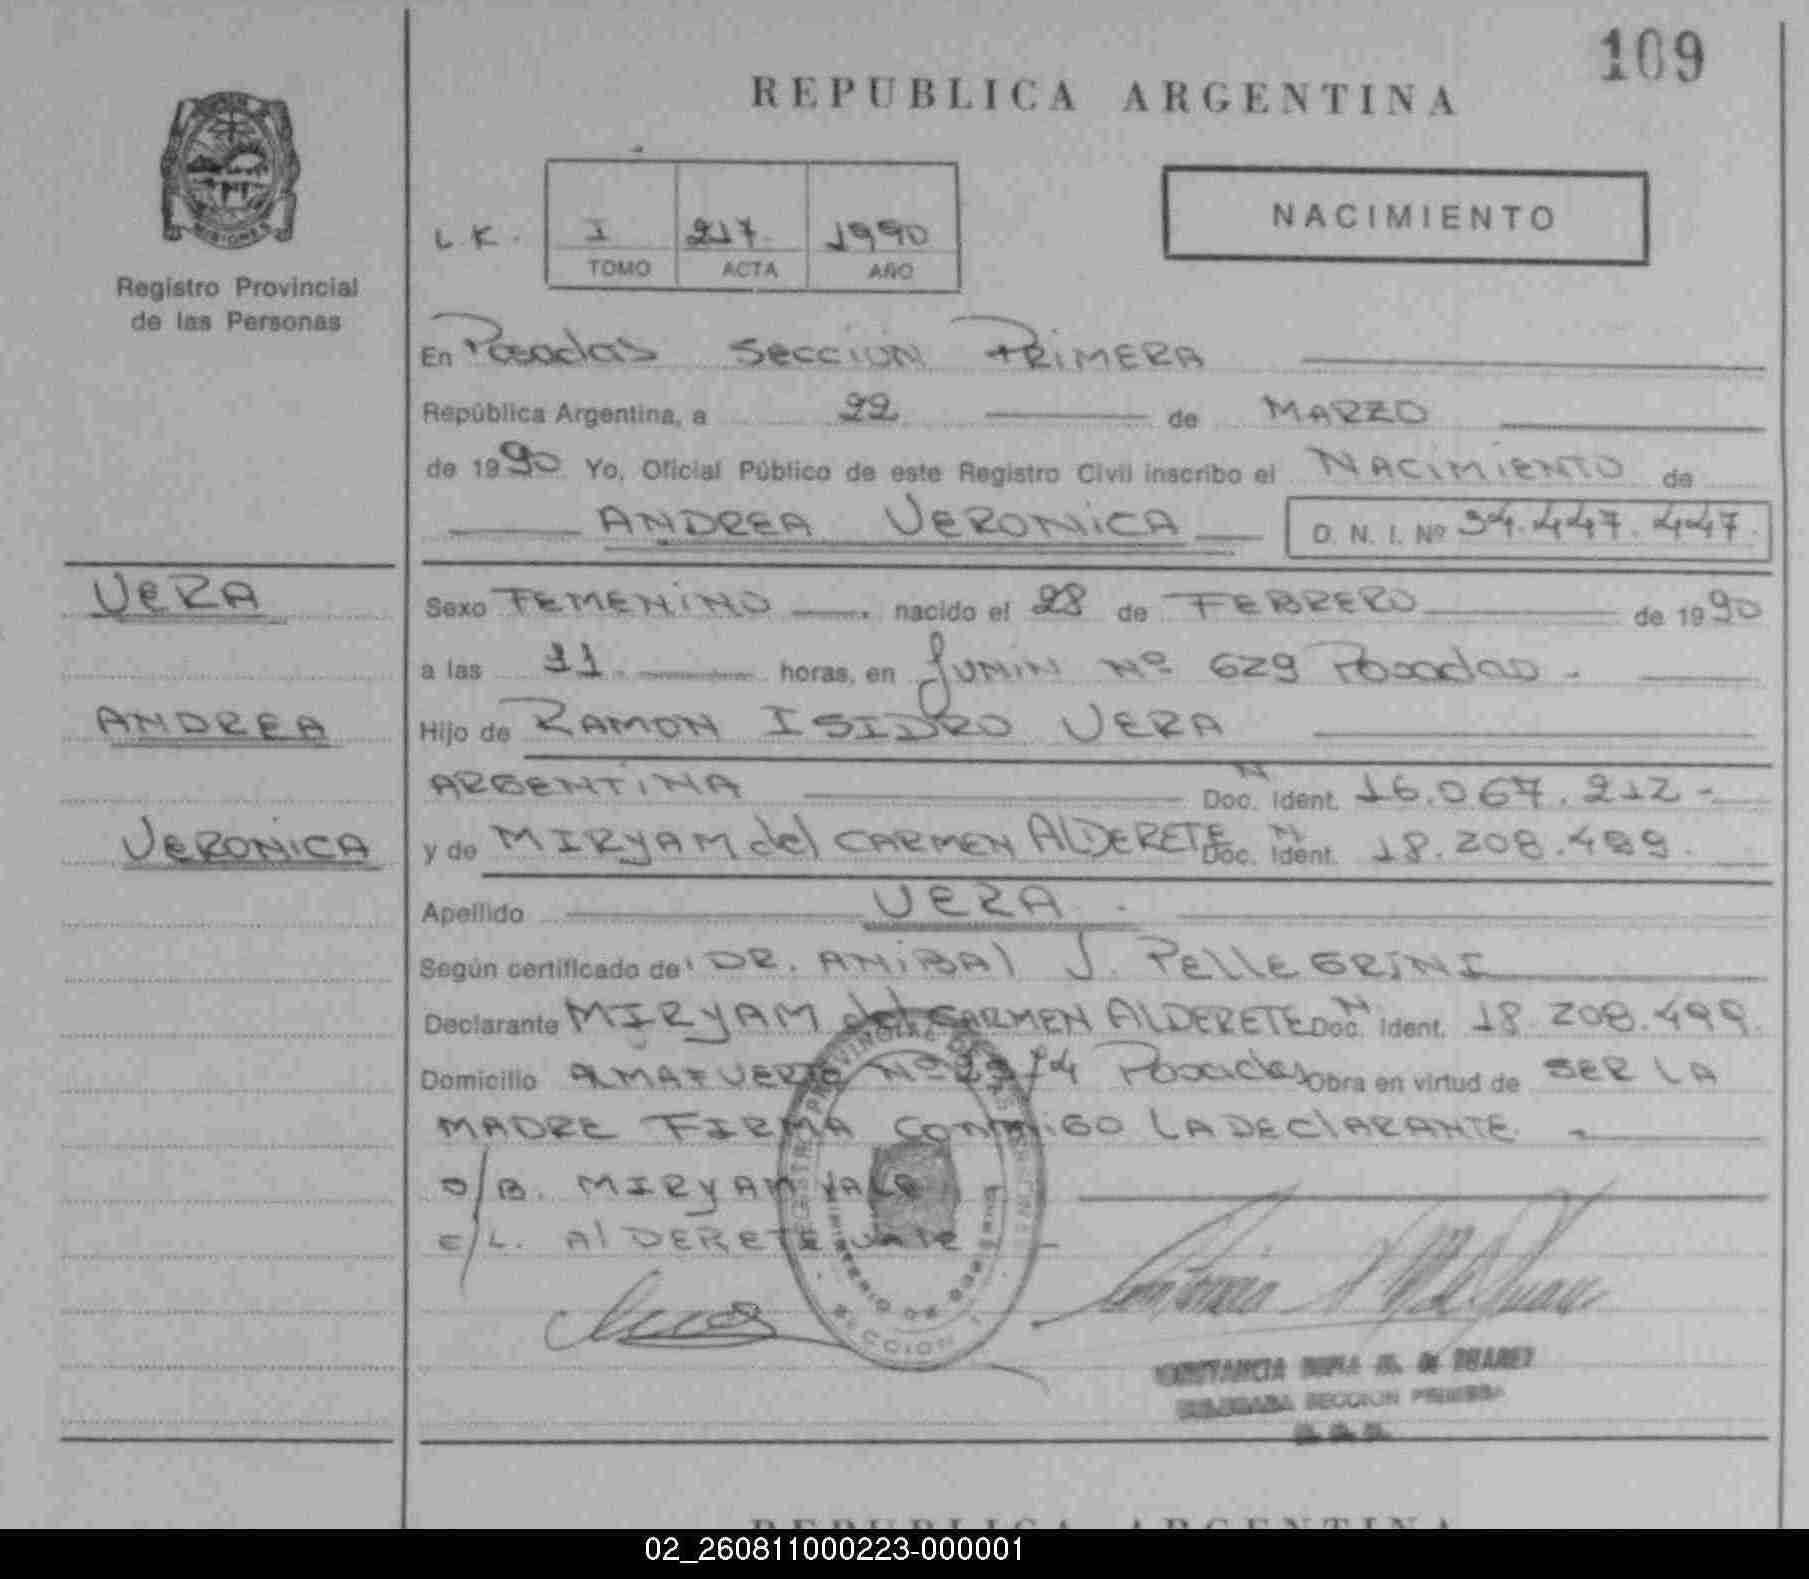 109
REPUBLICA ARGENTINA
MISIONES
Registro Provincial
de las Personas
NACIMIENTO
L.K. I 217. 1990
TOMO ACTA AÑO
En Posadas Sección PRIMERA
República Argentina, a 22 de MARZO
de 1990 Yo, Oficial Público de este Registro Civil inscribo el NACIMIENTO de
ANDREA VERONICA D. N. I. Nº 34.447.447.
VERA
ANDREA
VERONICA
Sexo FEMENINO nacido el 28 de FEBRERO de 1990
a las 11. horas, en JUNIN Nº 629 Posadas.
Hijo de RAMON ISIDRO VERA
ARGENTINA N Doc. Ident. 16.067.212-
y de MIRYAM del CARMEN ALDERETE N Doc. Ident. 18.208.499.
Apellido VERA.
Según certificado de DR. ANIBAL J. PELLEGRINI
Declarante MIRYAM del CARMEN ALDERETE N Doc. Ident. 18.208.499.
Domicilio ALMAFUERTE Nº Posadas Obra en virtud de SER LA
MADRE FIRMA CONMIGO LA DECLARANTE.
O/B. MIRYAM VALE
E/L. ALDERETE VALE
SECCION
DELEGADA SECCION PRIMERA
REPUBLICA ARGENTINA
02_260811000223-000001